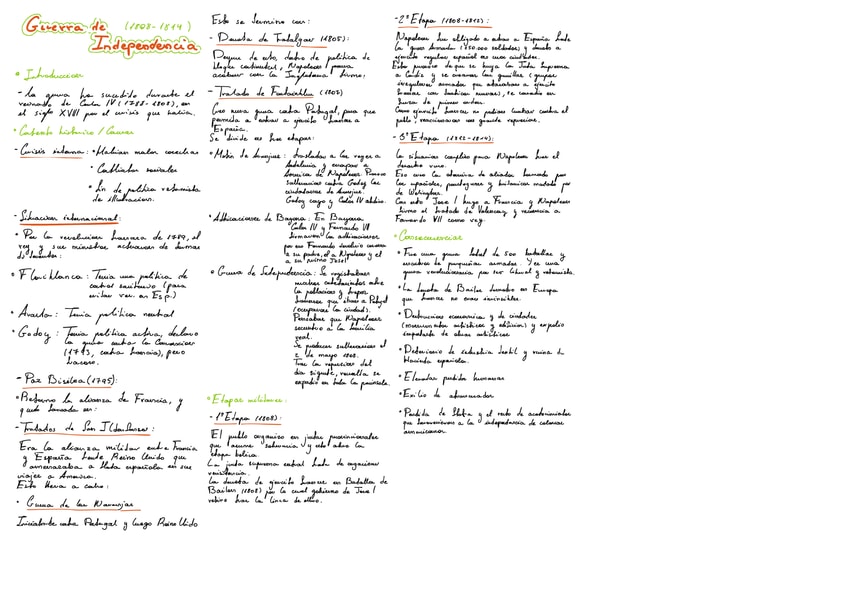 Guerra de (1808-1814)
Independencia
• Introducción
- La guerra ha sucedido durante el
reinado de Carlos IV (1788-1808), en
el siglo XVIII por el crisis que había.
• Contexto histórico / Causas
- Crisis interna: • Habían malas cosechas
• Cambios sociales
• Fin de política reformista
de ilustración.
- Situación internacional:
• Por la revolución francesa de 1789, el
rey y sus ministros actuaron de formas
diferentes:
• Floridablanca: Tenía una política de
control sanitario (para
evitar rev. en Esp.)
• Aranda: Tenía política neutral
• Godoy: Tenía política activa, declaró
la guerra contra la Convención
(1793, contra Francia), pero
fracasó.
- Paz Basilea (1795):
• Retomó la alianza de Francia, y
quedó firmada en:
- Tratados de San Ildefonso:
Era la alianza militar entre Francia
y España frente Reino Unido que
amenazaba a flota española en sus
viajes a América.
Esto lleva a cabo:
• Guerra de las Naranjas
Iniciada contra Portugal y luego Reino Unido
Esto se terminó con:
- Derrota de Trafalgar (1805):
Después de esto, dentro de política de
bloqueo continental, Napoleón
con la Inglaterra firmó:
- Tratado de Fontainebleau (1807)
Creó nueva guerra contra Portugal, para que
permita a entrar a ejército francés a
España.
Se divide en tres etapas:
• Motín de Aranjuez: trasladar a los reyes a
Andalucía y escapar a
América de Napoleón. Pronto
sublevación contra Godoy los
ciudadanos de Aranjuez.
Godoy cayó y Carlos IV abdicó.
• Abdicaciones de Bayona: En Bayona
Carlos IV y Fernando VII
firmaron las abdicaciones
por eso Fernando devolvió corona
a su padre, él a Napoleón y él
a su hermano José I
• Guerra de Independencia: Se registraban
muchos enfrentamientos entre
la población y tropas
francesas que iban a Portugal
(ocuparon la ciudad).
Pensaban que Napoleón
secuestró a la familia
real.
Se producen sublevaciones el
2 de mayo 1808.
Tras la represión del
día siguiente, revuelta se
expandió en toda la península.
• Etapas militares:
- 1ª Etapa (1808):
El pueblo organizó en juntas provinciales
que asume soberanía y esto abre la
etapa bélica.
La junta suprema central trata de organizar
resistencia.
La derrota de ejército francés en Batalla de
Bailén (1808) por lo cual gobierno de José I
retiró tras la línea de Ebro.
- 2ª Etapa (1808-1812):
Napoleón fue obligado a entrar a España
la gran Armada (250.000 soldados) y derrotó a
ejército regular español en sus ciudades.
Esto provocó de que se huya la Junta Suprema
a Cádiz y se crearon las guerrillas (grupos
irregulares armados que atacaban a ejército
francés con tácticas nuevas), se convirtió en
fuerza de primer orden.
Como ejército francés no podía luchar contra el
pueblo, reaccionaron con grande represión.
- 3ª Etapa (1812-1814):
La situación complicó para Napoleón tras el
desastre ruso.
Eso creó la ofensiva de aliados formada por
los españoles, portugueses y británicos mandada por
de Wellington.
Con esto José I huyó a Francia y Napoleón
firmó el tratado de Valençay y reconoció a
Fernando VII como rey.
• Consecuencias
• Fue una guerra total de 500 batallas y
encuentros de pequeñas armadas. Y es una
guerra revolucionaria por ser liberal y reformista.
• La derrota de Bailén demostró en Europa
que Francia no eran invencibles.
• Destrucciones económicas y de ciudades
(monumentos artísticos y edificios) y expolio
importante de obras artísticas
• Deterioro de industria textil y ruina de
Hacienda española.
• Elevadas pérdidas humanas
• Exilio de afrancesados
• Pérdida de flota y el resto de acontecimientos
que favorecieron a la independencia de colonias
americanas.